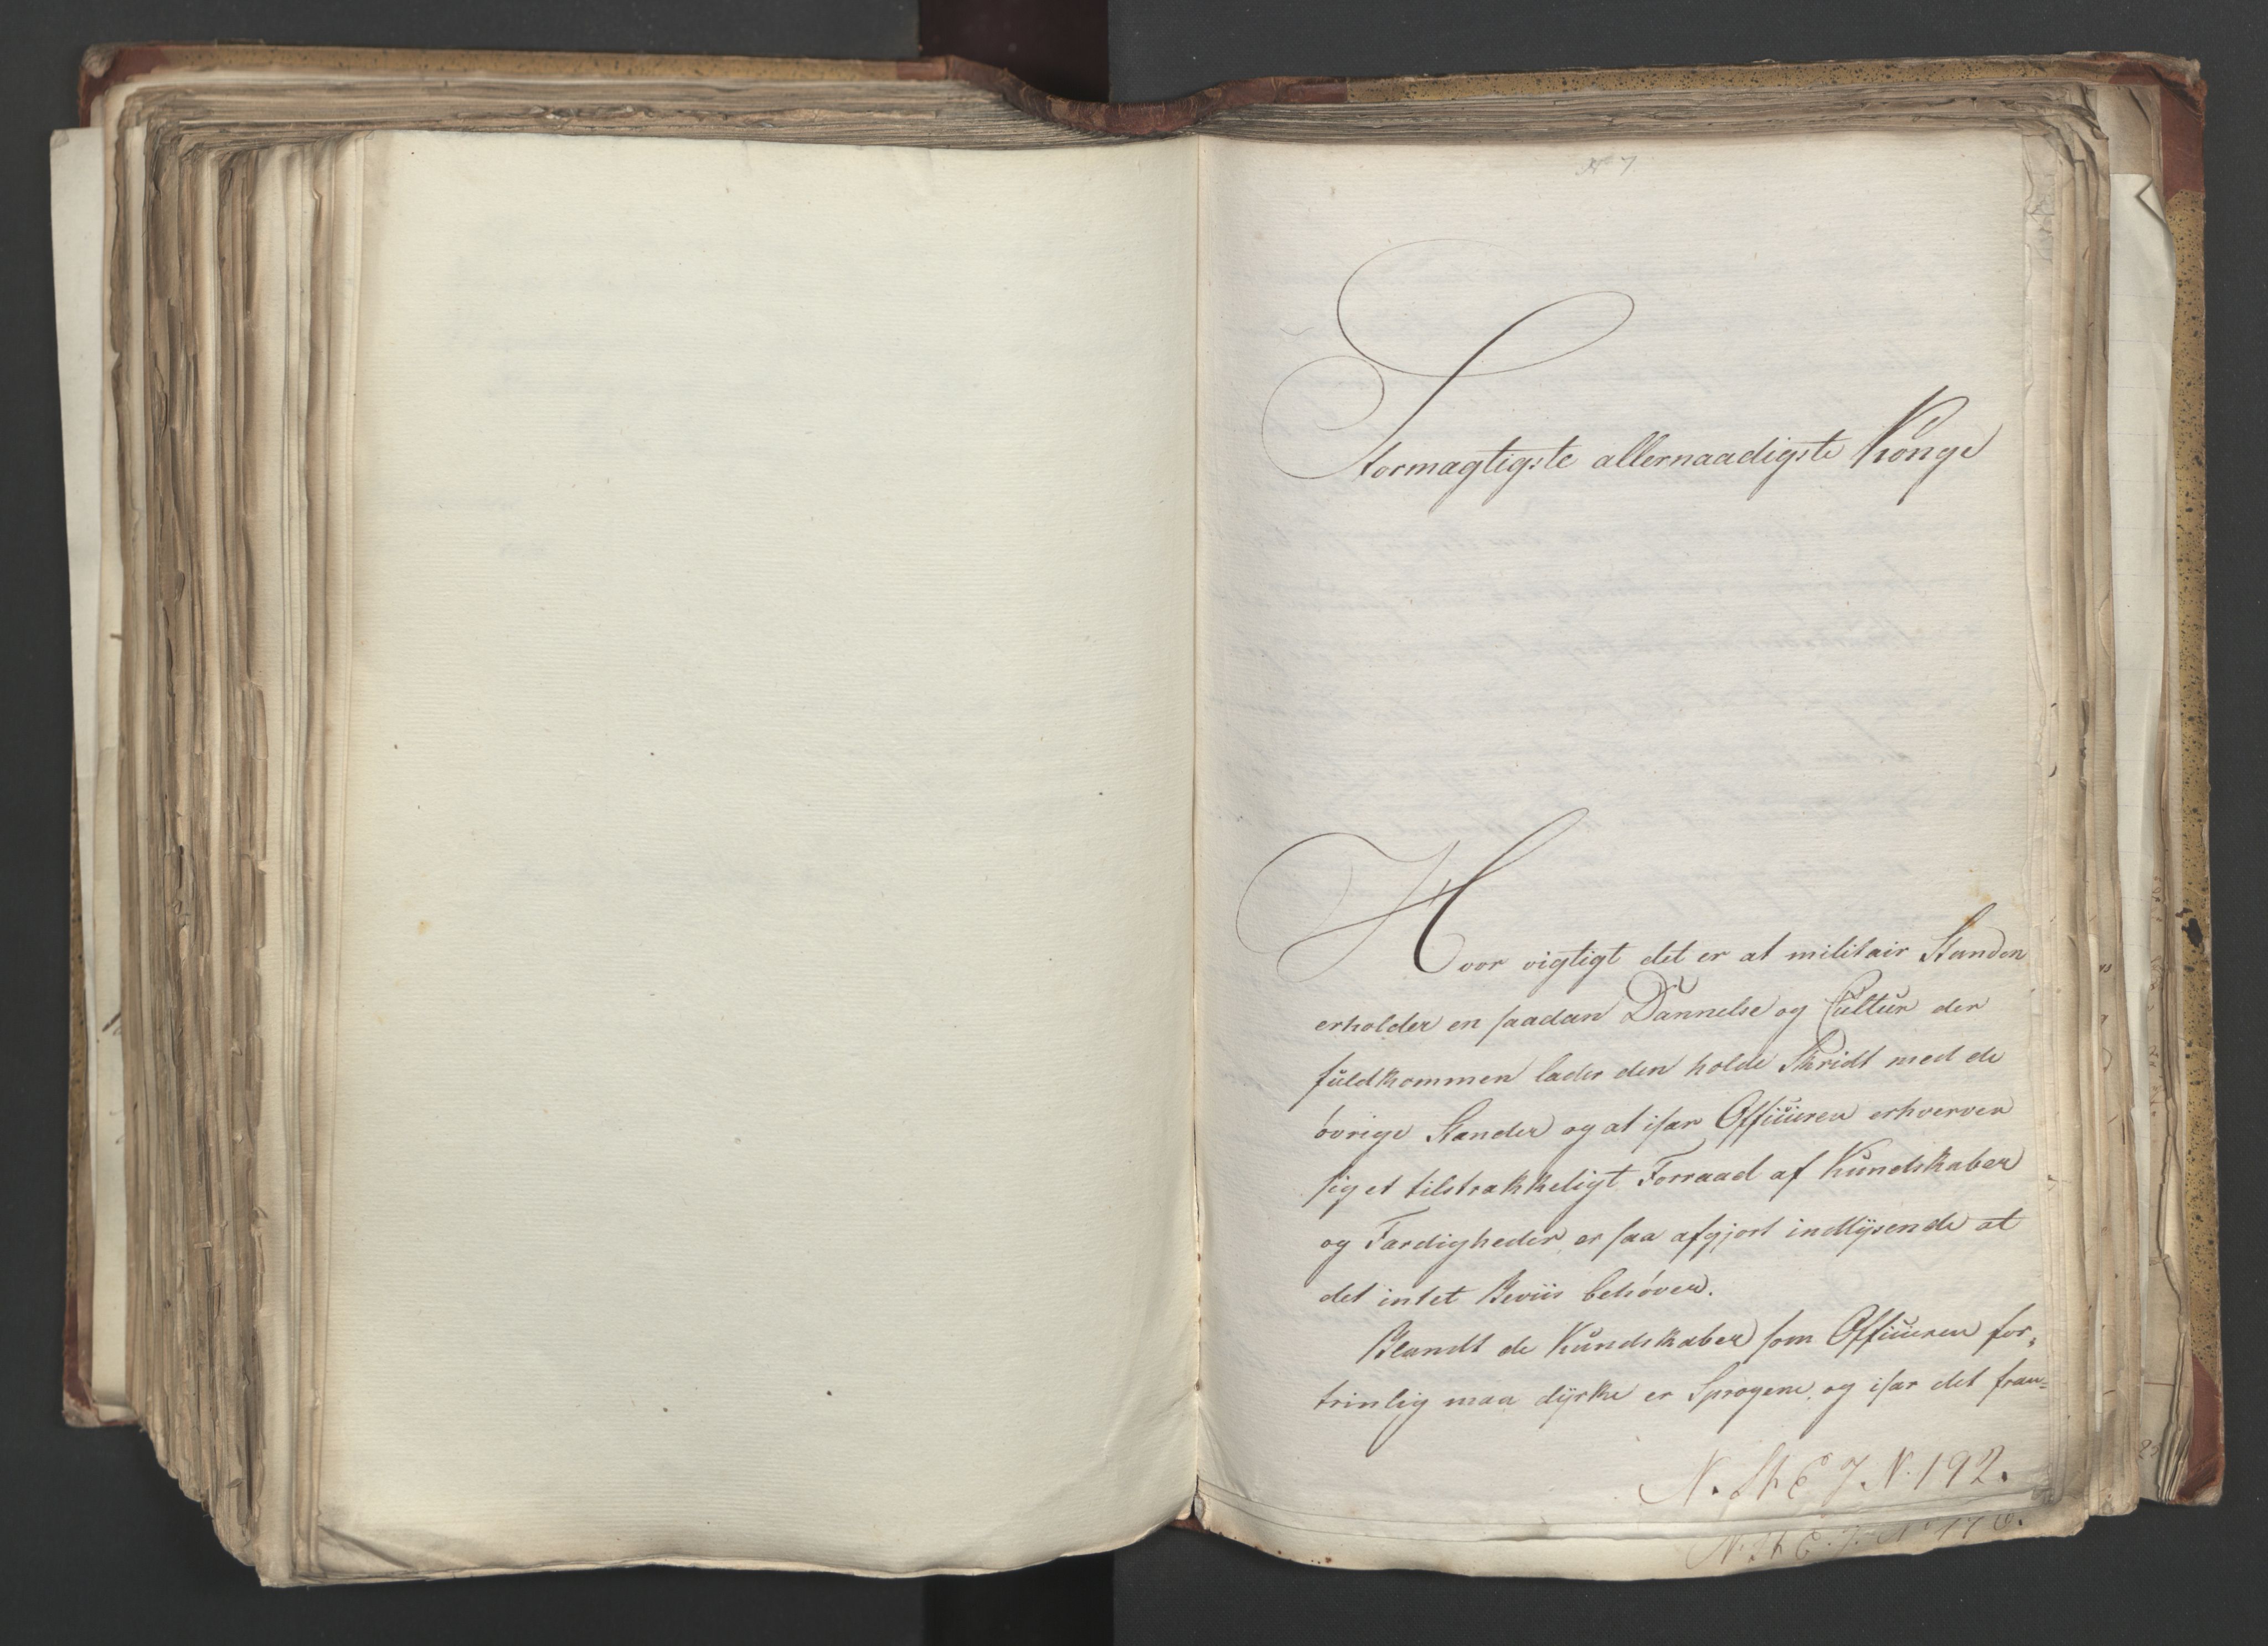 No 7
Stormagtigste allernaadigste Konge
Hvor vigtigt det er at militair Standen
erholder en saadan Dannelse og Cultur der
fuldkommen lader den holde Skridt med de
övrige Stænder og at især Officieren erhverver
sig et tilstrækkeligt Forraad af Kundskaber
og Færdigheder, er saa afgjort indlÿsende at
det intet Beviis behöver.
Blandt de Kundskaber som Officieren for„
trinlig maa dÿrke er Sprogene, og især det fran=
N. St. E. J. N. 192.